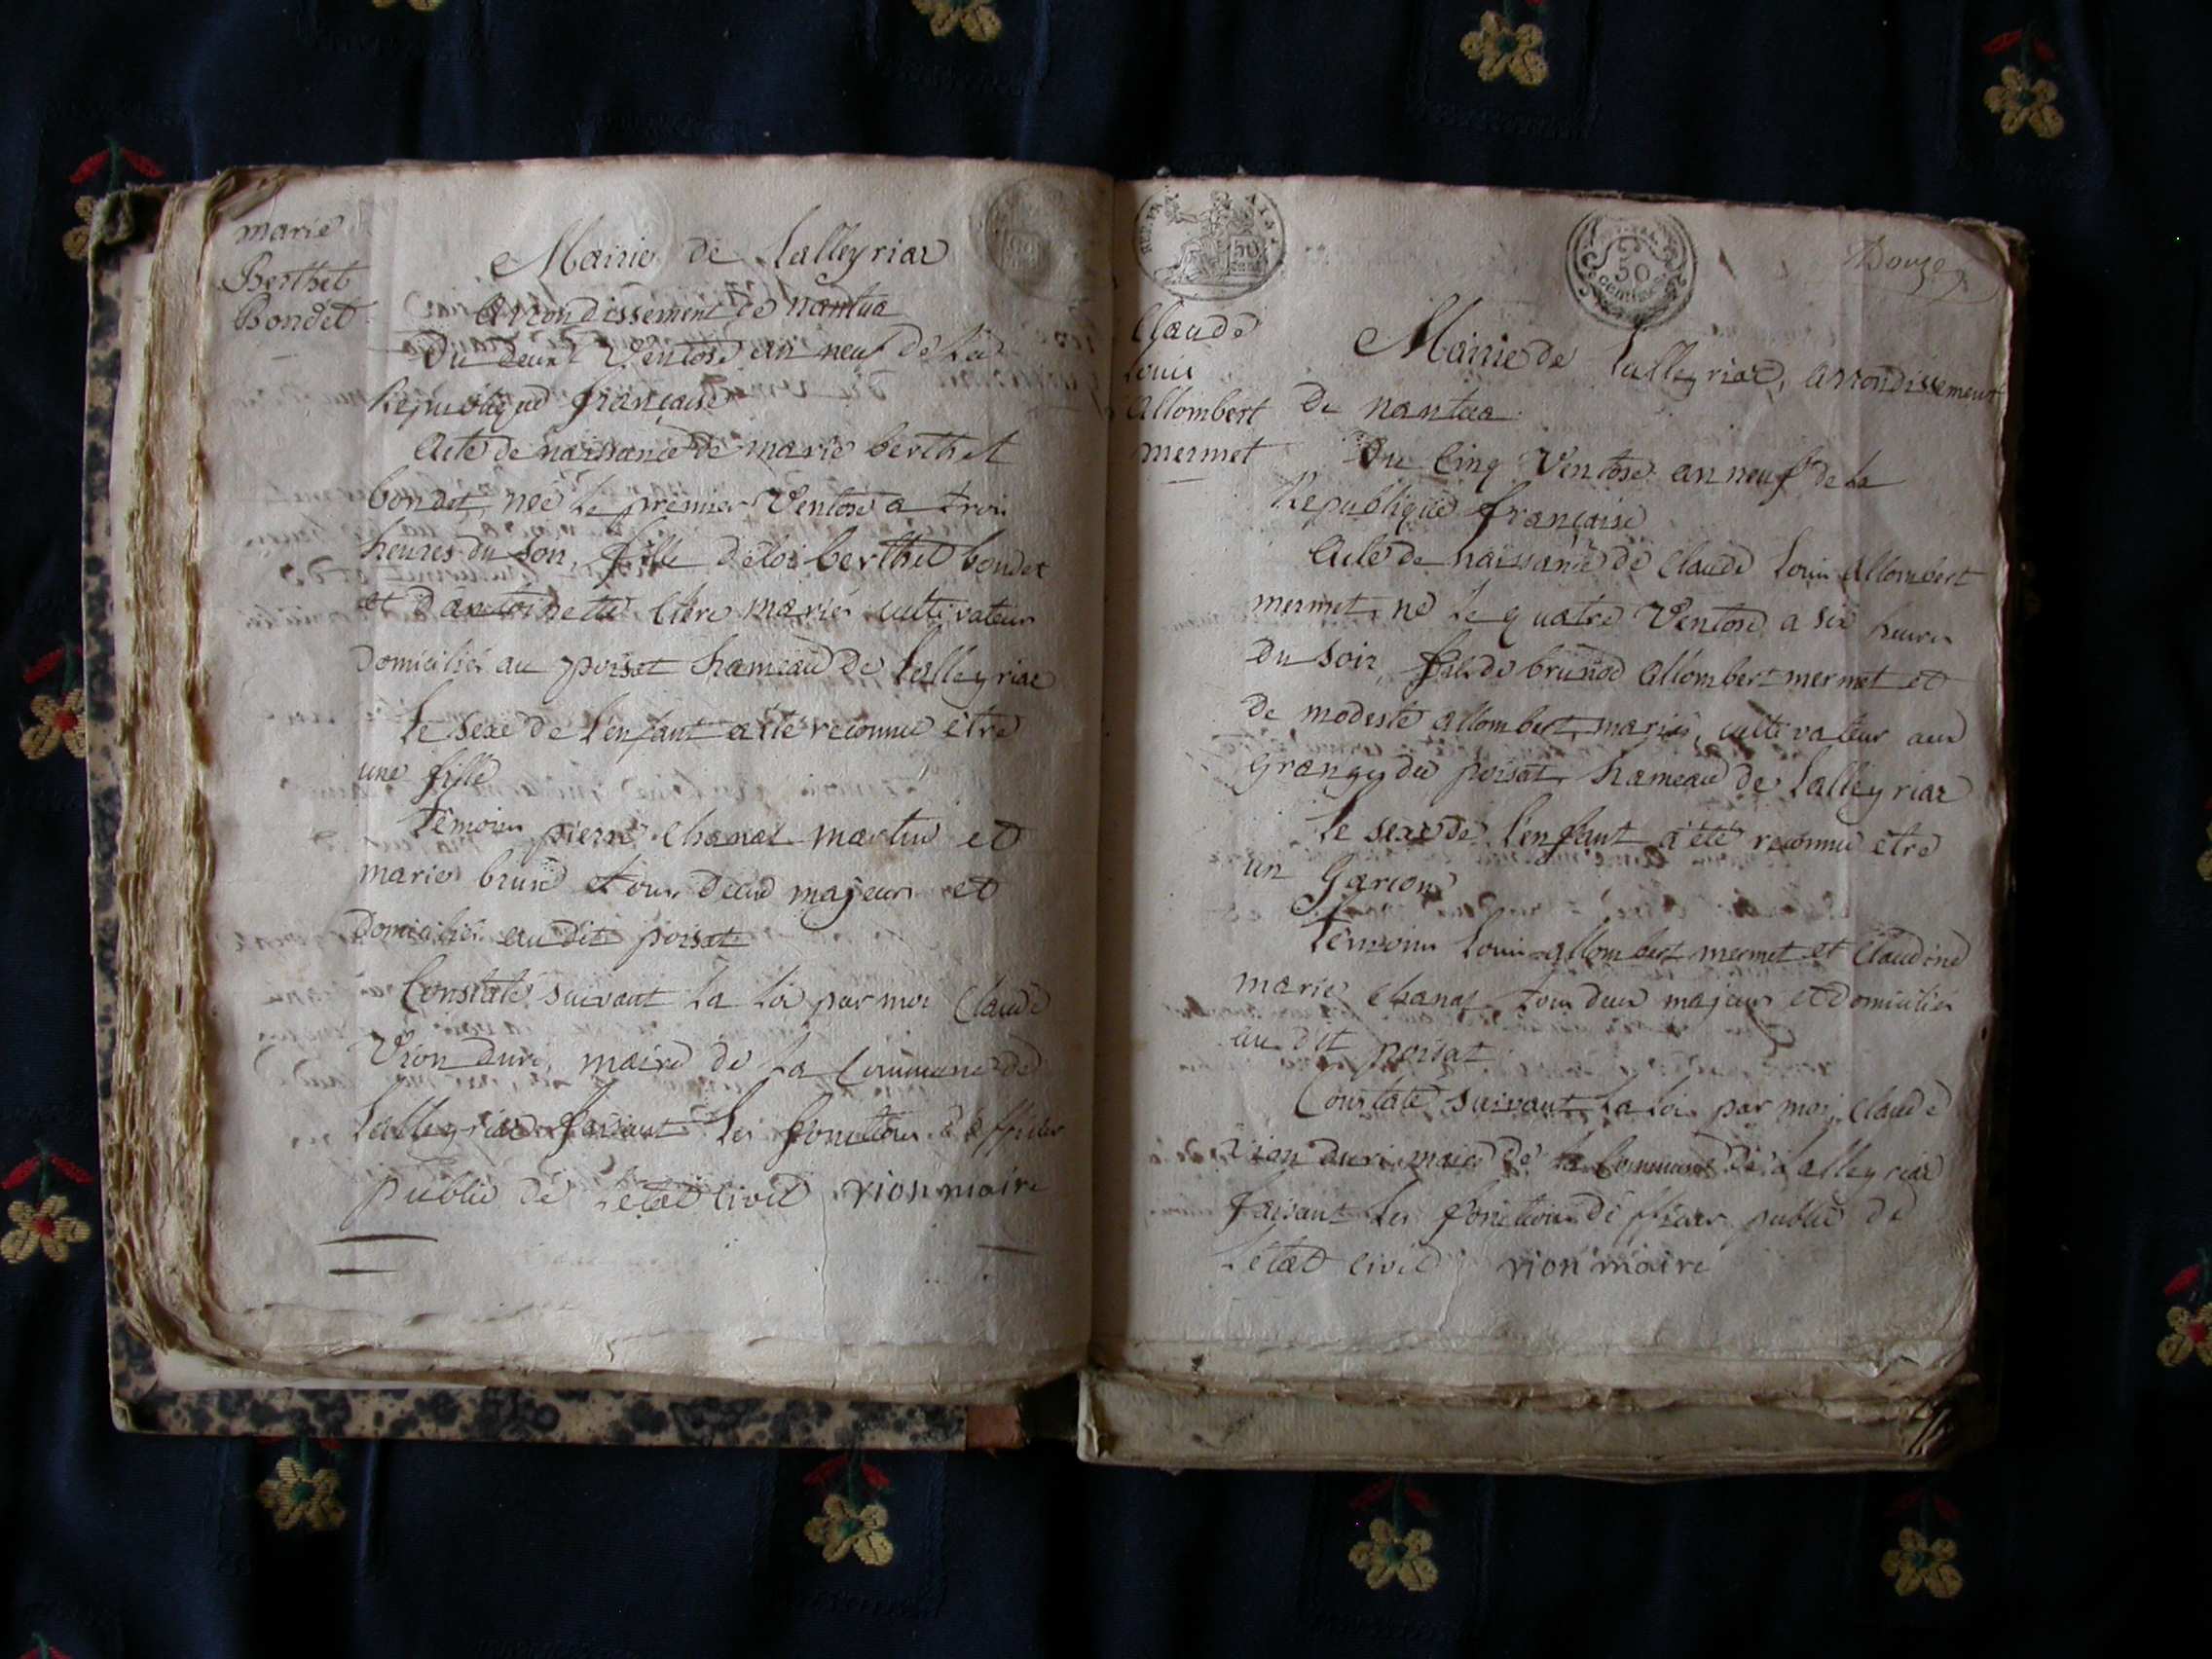 marie
Berthet
Bondet
Mairie de Lalleyriat
arrondissement de nantua
Du deux Ventose an neuf de la
Republique française
Acte de naissance de marie berthet
bondet, née le premier Ventose a trois
heures du soir, fille déloi berthet bondet
et dantoinette mariés cultivateurs
domiciliés au poisat hameau de Lalleyriat
le sexe de l'enfant a été reconnu être
une fille
témoins pierre chanal martin et
marie brun tous deux majeurs et
domiciliés au dit poisat
Constaté suivant la loi par moi Claude
Vion duri, maire de la Commune de
Lalleyriat faisant les fonctions d'officier
public de l'état civil vion maire
50
Claude
Louis
allombert
mermet
50
centimes
Douze
Mairie de Lalleyriat, arrondissement
de nantua
Du Cinq Ventose an neuf de la
Republique française
Acte de naissance de Claude Louis allombert
mermet, né le quatre Ventose a six heures
du soir, fils de allombert mermet et
de modeste allombert, mariés, cultivateur aux
granges du poisat hameau de Lalleyriat
le sexe de l'enfant a été reconnu être
un Garçon
témoins Louis allombert mermet et Claudine
marie chanal, tous deux majeurs et domiciliés
au dit poisat
Constaté suivant la loi par moi Claude
vion duri maire de la Commune de Lalleyriat
faisant les fonctions de officier public de
l'état civil vion maire